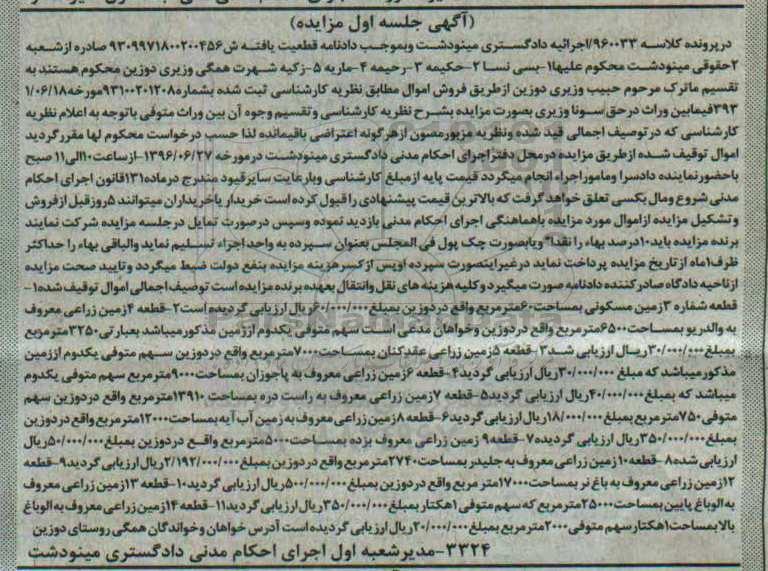 (آگهی جلسه اول مزایده)
درپرونده کلاسه ۹۶۰۰۳۳/اجرائیه دادگستری مینودشت وبموجب دادنامه قطعیت یافته ش۹۳۰۹۹۷۱۸۰۰۲۰۰۴۵۶ صادره ازشعبه
۲حقوقی مینودشت محکوم علیها۱-بسی نسا ۲-حکیمه ۳-رحیمه ۴-ماریه ۵-زکیه شهرت همگی وزیری دوزین محکوم هستند به
تقسیم ماترک مرحوم حبیب وزیری دوزین ازطریق فروش اموال مطابق نظریه کارشناسی ثبت شده بشماره۹۳۱۰۰۲۰۱۲۰۸مورخه۱/۰۶/۱۸
۳۹۳فیمابین وراث درحق سونا وزیری بصورت مزایده بشرح نظریه کارشناسی وتقسیم وجوه آن بین وراث متوفی باتوجه به اعلام نظریه
کارشناسی که درتوصیف اجمالی قید شده ونظریه مزبورمصون ازهرگونه اعتراضی باقیمانده لذا حسب درخواست محکوم لها مقررگردید
اموال توقیف شده ازطریق مزایده درمحل دفتراجرای احکام مدنی دادگستری مینودشت درمورخه ۱۳۹۶/۰۶/۲۷-ازساعت۱۰الی۱۱ صبح
باحضورنماینده دادسرا وماموراجراء انجام میگردد قیمت پایه ازمبلغ کارشناسی وبارعایت سایرقیود مندرج درماده۱۳۱قانون اجرای احکام
مدنی شروع ومال بکسی تعلق خواهد گرفت که بالاترین قیمت پیشنهادی راقبول کرده است خریدار یاخریداران میتوانند ۵روزقبل ازفروش
وتشکیل مزایده ازاموال مورد مزایده باهماهنگی اجرای احکام مدنی بازدید نموده وسپس درصورت تمایل درجلسه مزایده شرکت نمایند
برنده مزایده باید۱۰درصد بهاء را نقدا" ویابصورت چک پول فی المجلس بعنوان سپرده به واحد اجراء تسلیم نماید والباقی بهاء را حداکثر
ظرف۱ماه ازتاریخ مزایده پرداخت نماید درغیراینصورت سپرده اوپس ازکسرهزینه مزایده بنفع دولت ضبط میگردد وتایید صحت مزایده
ازناحیه دادگاه صادرکننده دادنامه صورت میگیرد وکلیه هزینه های نقل وانتقال بعهده برنده مزایده است توصیف اجمالی اموال توقیف شده۱-
قطعه شماره ۳زمین مسکونی بمساحت۶۰مترمربع واقع دردوزین بمبلغ۶۰/۰۰۰/۰۰۰ریال ارزیابی گردیده است۲-قطعه ۴زمین زراعی معروف
به والدریو بمساحت۶۵۰۰مترمربع واقع دردوزین وخواهان مدعی است سهم متوفی یکدوم اززمین مذکورمیباشد بعبارتی۳۲۵۰مترمربع
بمبلغ۳۰/۰۰۰/۰۰۰ریال ارزیابی شد۳-قطعه ۵زمین زراعی عقدکنان بمساحت۷۰۰۰مترمربع واقع دردوزین سهم متوفی یکدوم اززمین
مذکورمیباشد که مبلغ ۳۰/۰۰۰/۰۰۰ریال ارزیابی گردید۴-قطعه ۶زمین زراعی معروف به پاجوزان بمساحت۹۰۰۰مترمربع سهم متوفی یکدوم
میباشد که بمبلغ۴۰/۰۰۰/۰۰۰ریال ارزیابی گردید۵-قطعه ۷زمین زراعی معروف به راست دره بمساحت ۱۳۹۱۰مترمربع واقع دردوزین سهم
متوفی۷۵۰مترمربع بمبلغ۱۸/۰۰۰/۰۰۰ریال ارزیابی گردید۶-قطعه ۸زمین زراعی معروف به زمین آب آیه بمساحت۱۲۰۰۰مترمربع واقع دردوزین
بمبلغ۳۵۰/۰۰۰/۰۰۰ریال ارزیابی گردیده۷-قطعه۹ زمین زراعی معروف بزده بمساحت۵۰۰۰مترمربع واقع دردوزین بمبلغ۵۰/۰۰۰/۰۰۰ریال
ارزیابی شده۸-قطعه۱۰زمین زراعی معروف به جلیدر بمساحت۲۷۴۰مترمربع واقع دردوزین بمبلغ۲/۱۹۲/۰۰۰/۰۰۰ریال ارزیابی گردید۹-قطعه
۱۲زمین زراعی معروف به باغ نر بمساحت۱۷۰۰۰مترمربع واقع دردوزین بمبلغ۵۰۰/۰۰۰/۰۰۰ریال ارزیابی گردید۱۰-قطعه ۱۳زمین زراعی معروف
به الوباغ پایین بمساحت۲۵۰۰۰مترمربع که سهم متوفی ۱هکتار بمبلغ۳۵۰/۰۰۰/۰۰۰ریال ارزیابی گردید۱۱-قطعه ۱۴زمین زراعی معروف به الوباغ
بالا بمساحت۱هکتارسهم متوفی۲۰۰۰مترمربع بمبلغ۲۰/۰۰۰/۰۰۰ریال ارزیابی گردیده است آدرس خواهان وخواندگان همگی روستای دوزین
۳۳۲۴-مدیرشعبه اول اجرای احکام مدنی دادگستری مینودشت